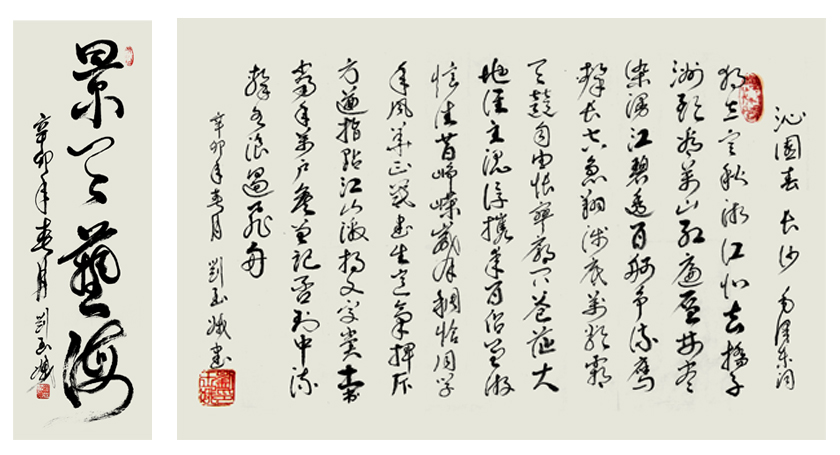 景 藝海
辛卯年春月 劉玉
沁園春 长沙 毛泽东词
独立寒秋湘江北去橘子
洲头看萬山红遍层林尽
染漫江碧透百舸争流鹰
擊长空鱼翔浅底萬类霜
天竞自由怅寥廓问苍茫大
地谁主沉浮携来百侣曾游
忆往昔峥嵘岁月稠恰同学
少年风华正茂书生意气挥斥
方遒指點江山激扬文字粪土
當年萬户侯曾记否到中流
擊水浪遏飞舟
辛卯年春月 劉玉 书